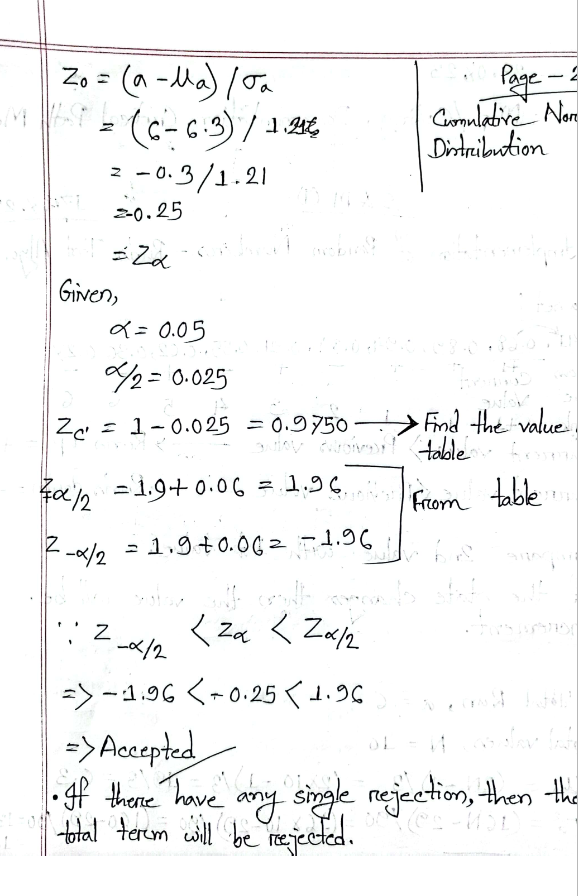 Z₀ = (a - μₐ) / σₐ
= (6 - 6.3) /
= -0.3/1.21
= -0.25
= Zα
Page - 2
Cumulative Nor
Distribution
Given,
α = 0.05
α/2 = 0.025
Zc' = 1 - 0.025 = 0.9750 → Find the value
table
Zα/2 = 1.9 + 0.06 = 1.96
Z-α/2 = 1.9 + 0.06 = -1.96
From table
∵ Z-α/2 < Zα < Zα/2
=> -1.96 < -0.25 < 1.96
=> Accepted
• If there have any single rejection, then the
total term will be rejected.